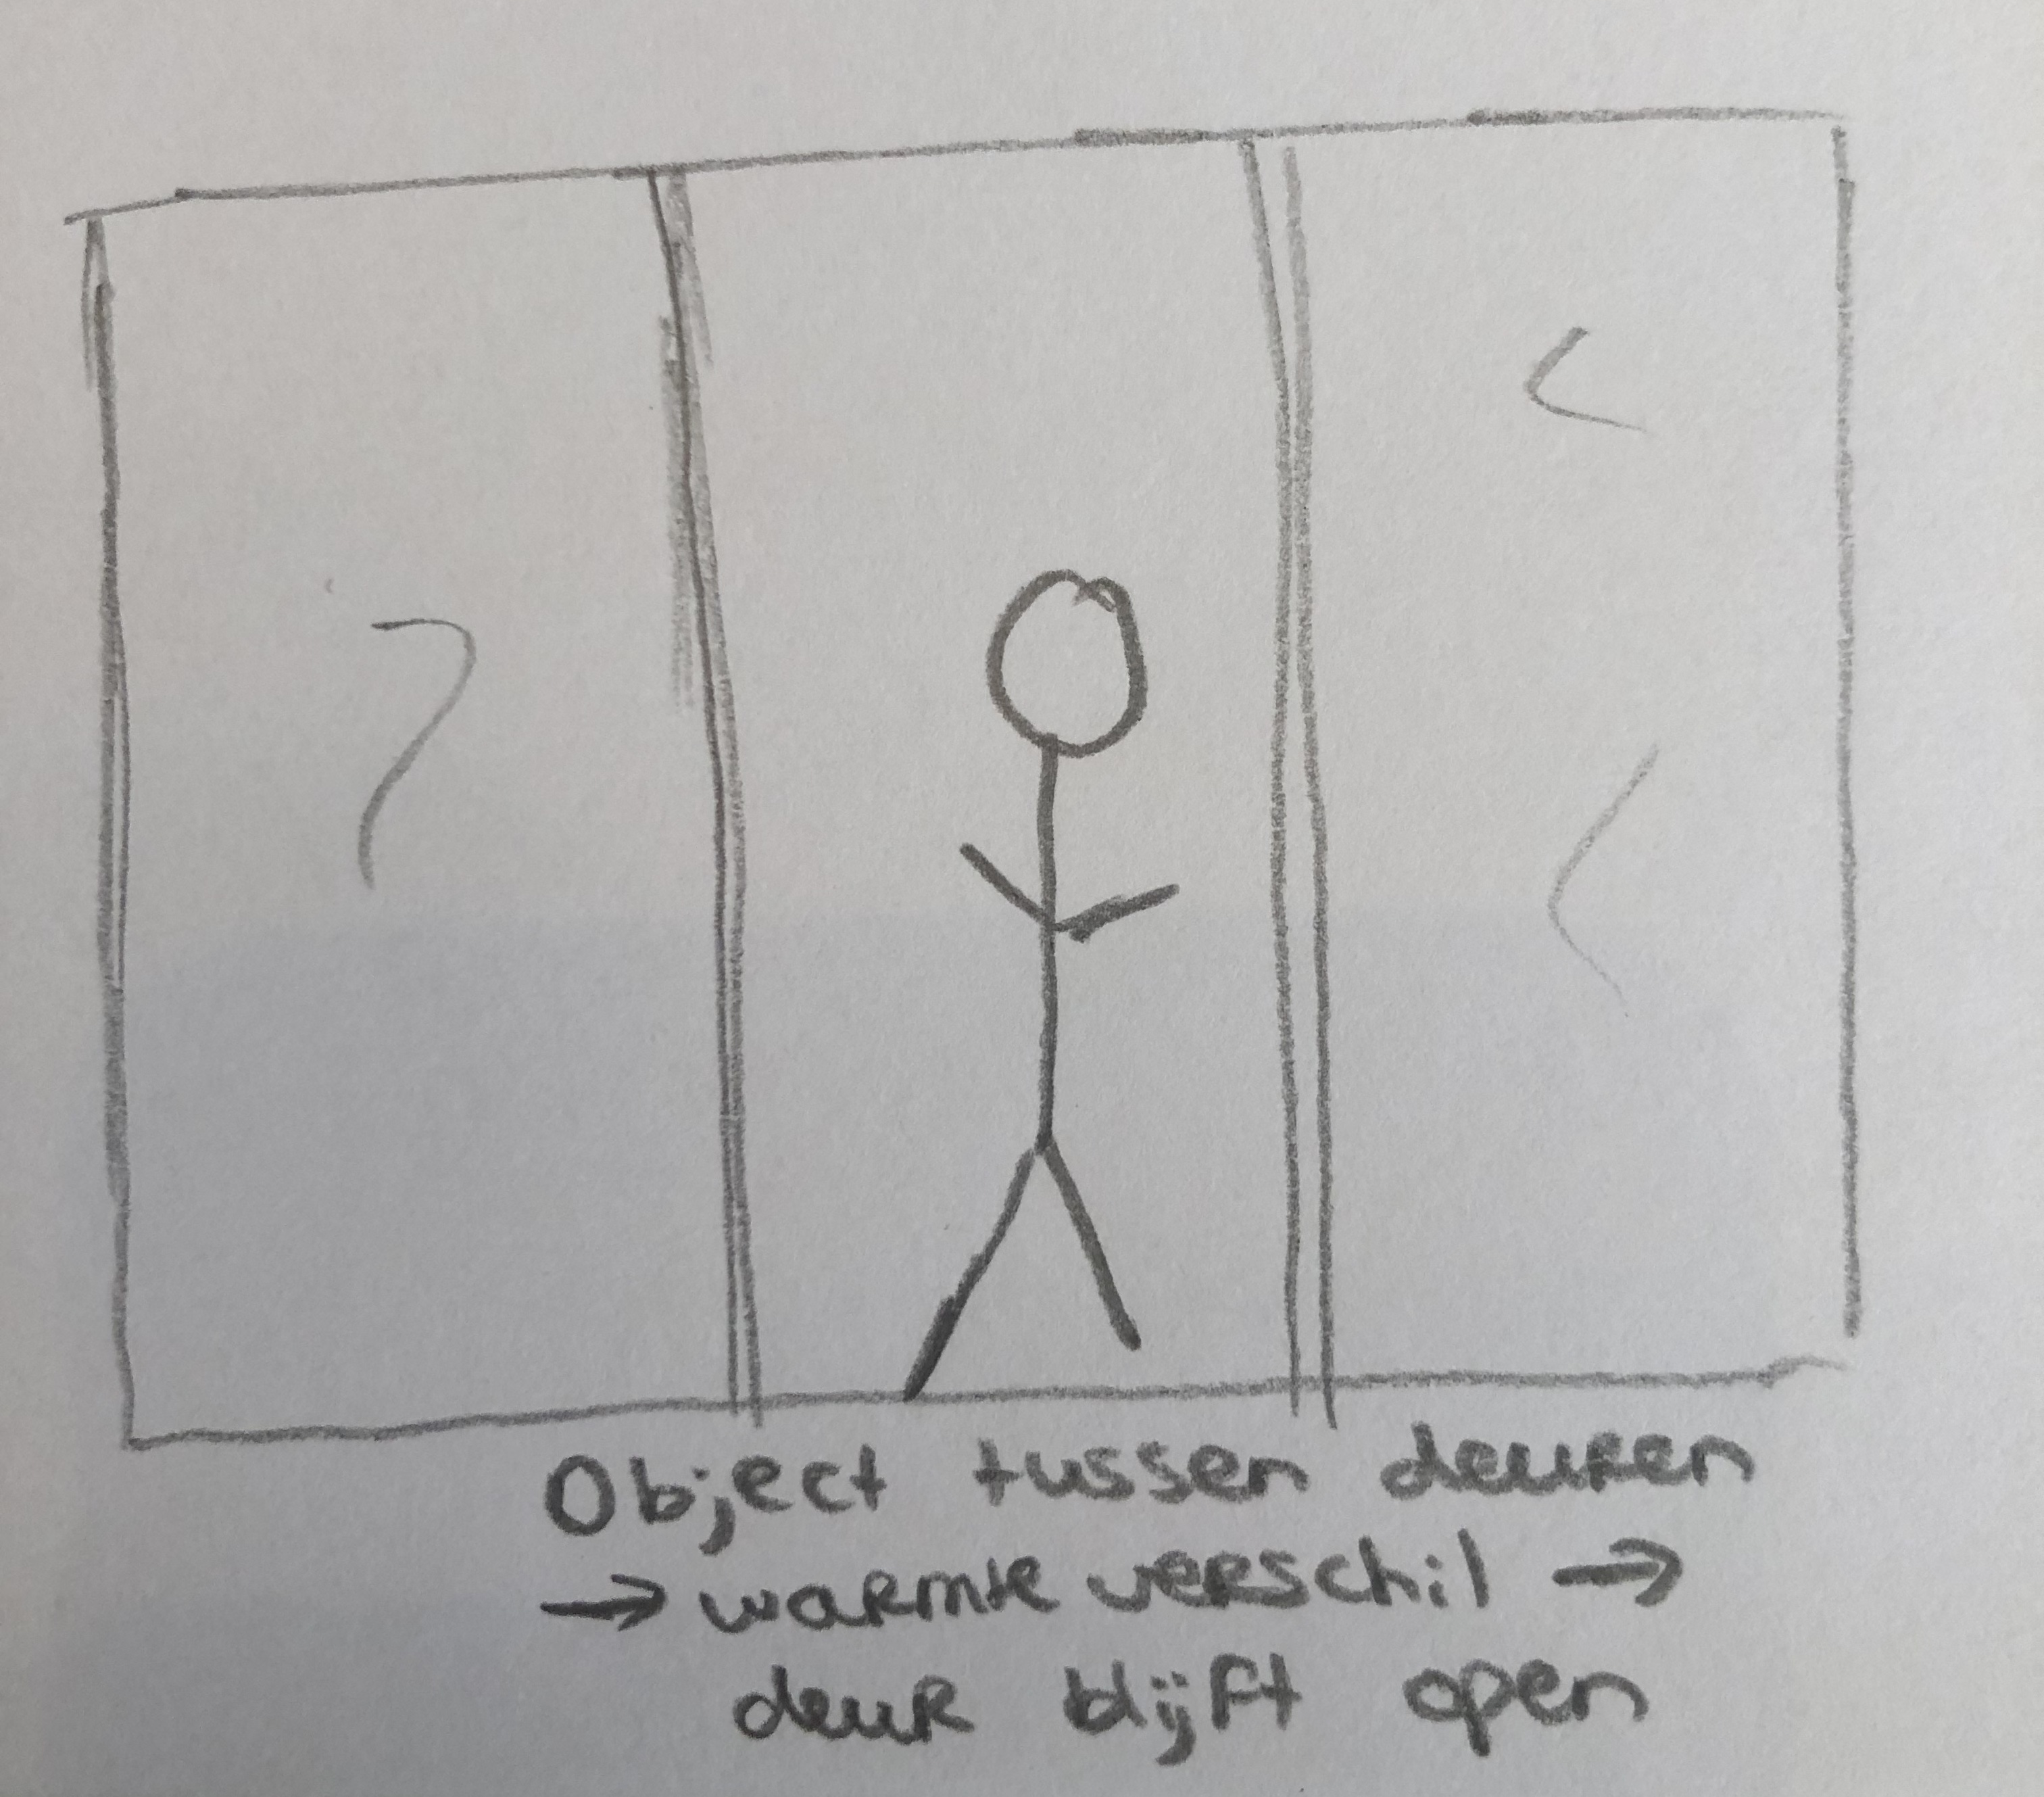 Object tussen deuren
→ warmte verschil →
deur blijft open